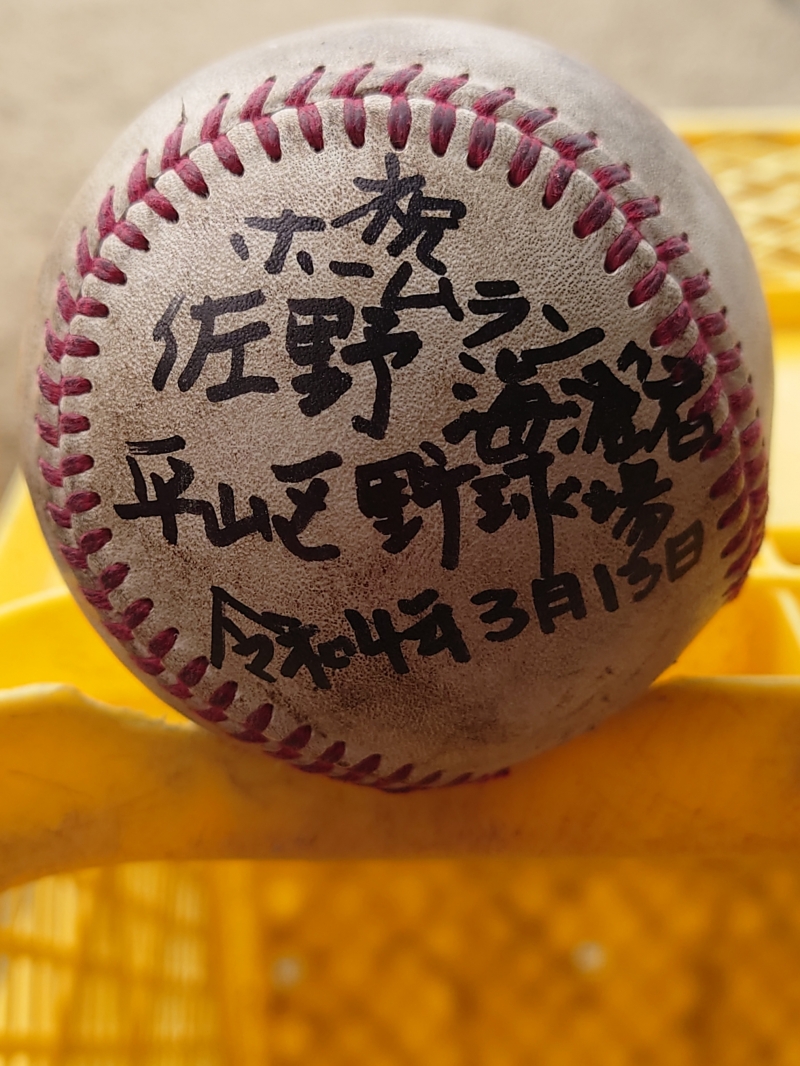 祝
ホームラン
佐野海港君
平山区野球場
令和4年3月13日